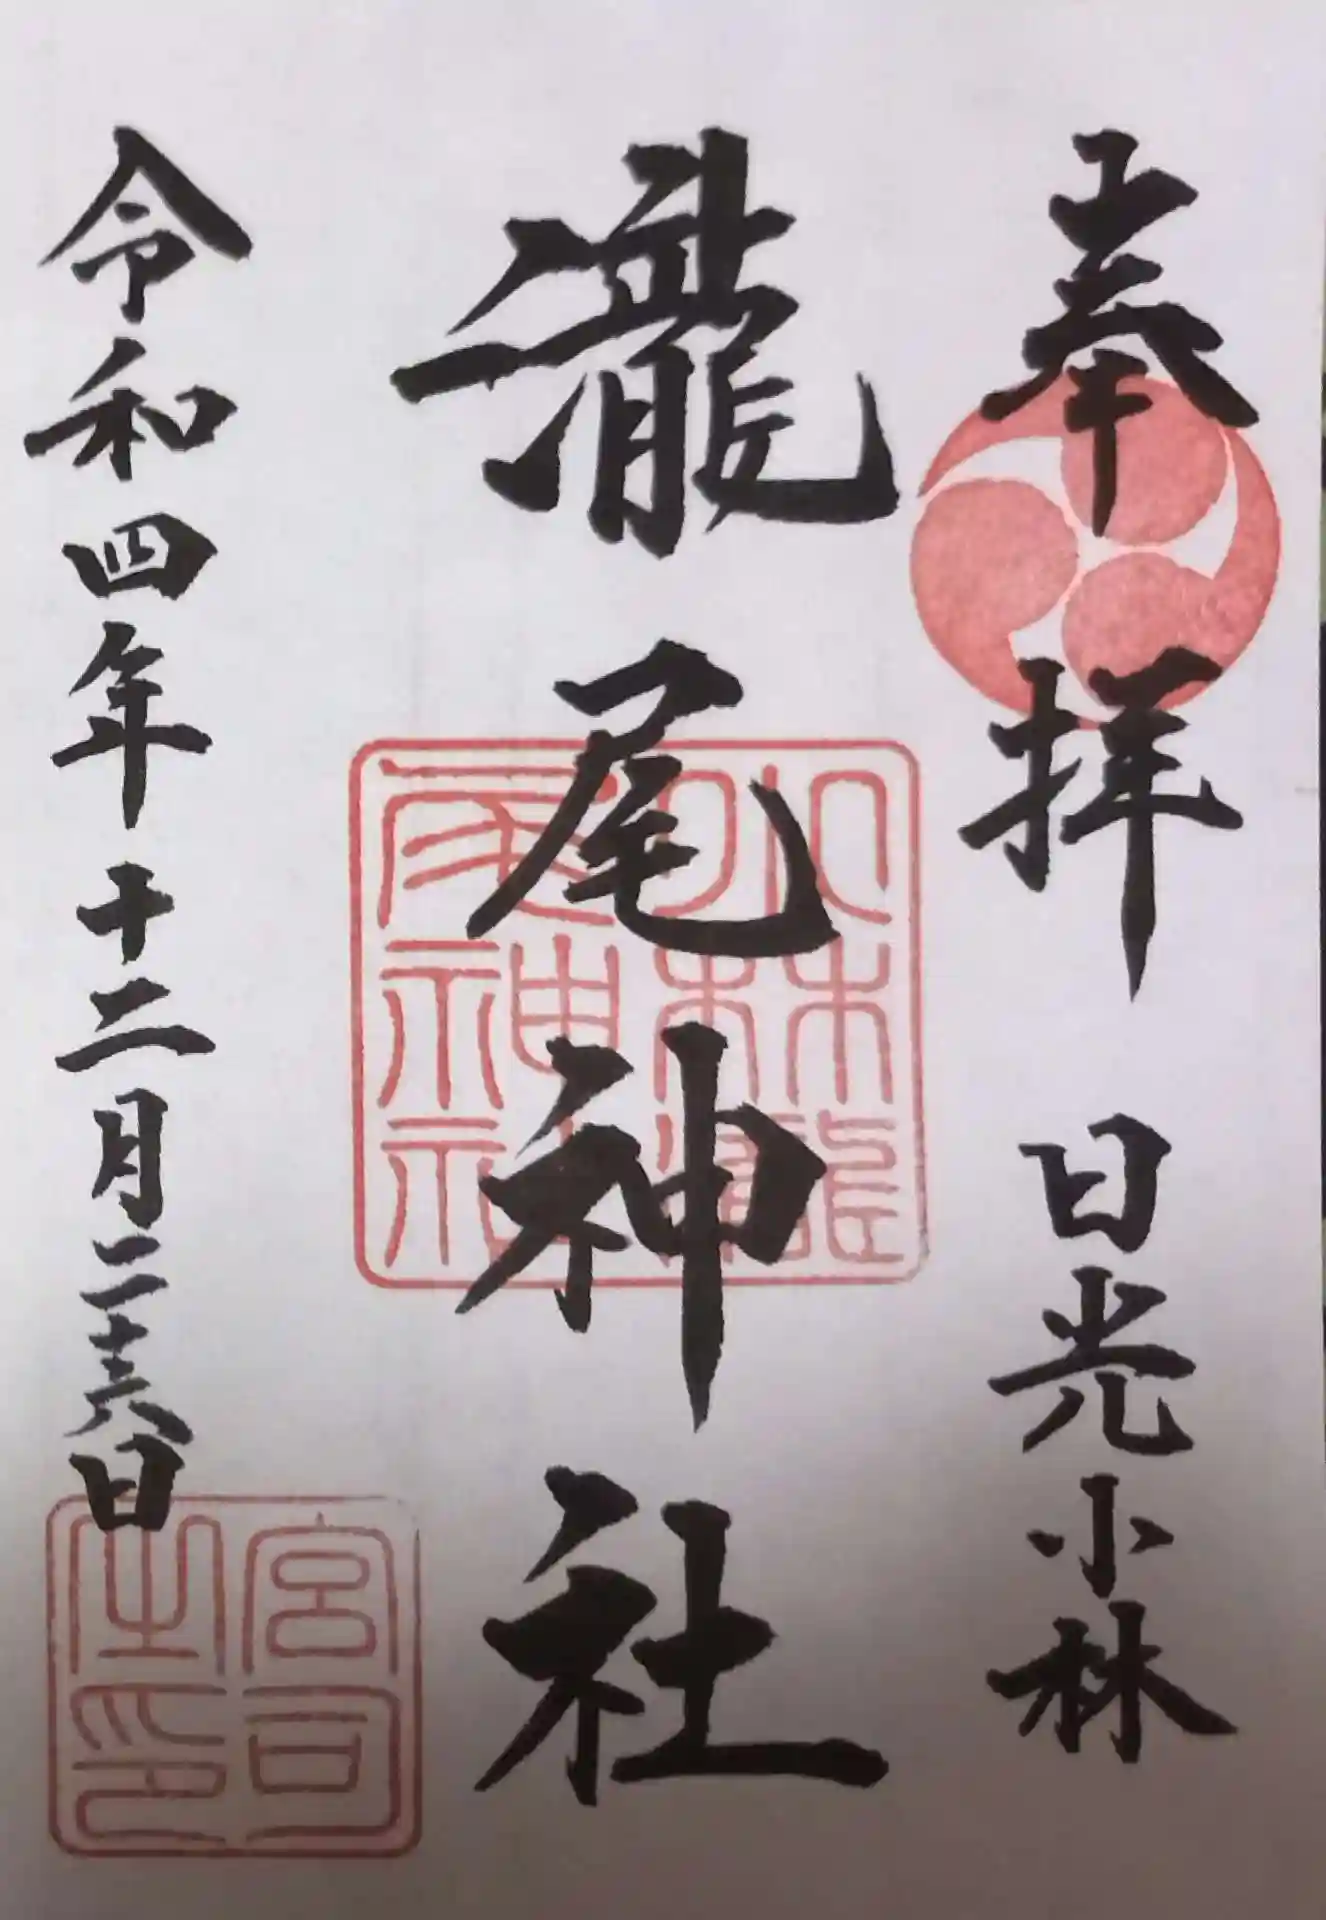 奉拝 日光小林
瀧尾神社
令和四年十二月二十六日
小林瀧尾神社
宮司之印